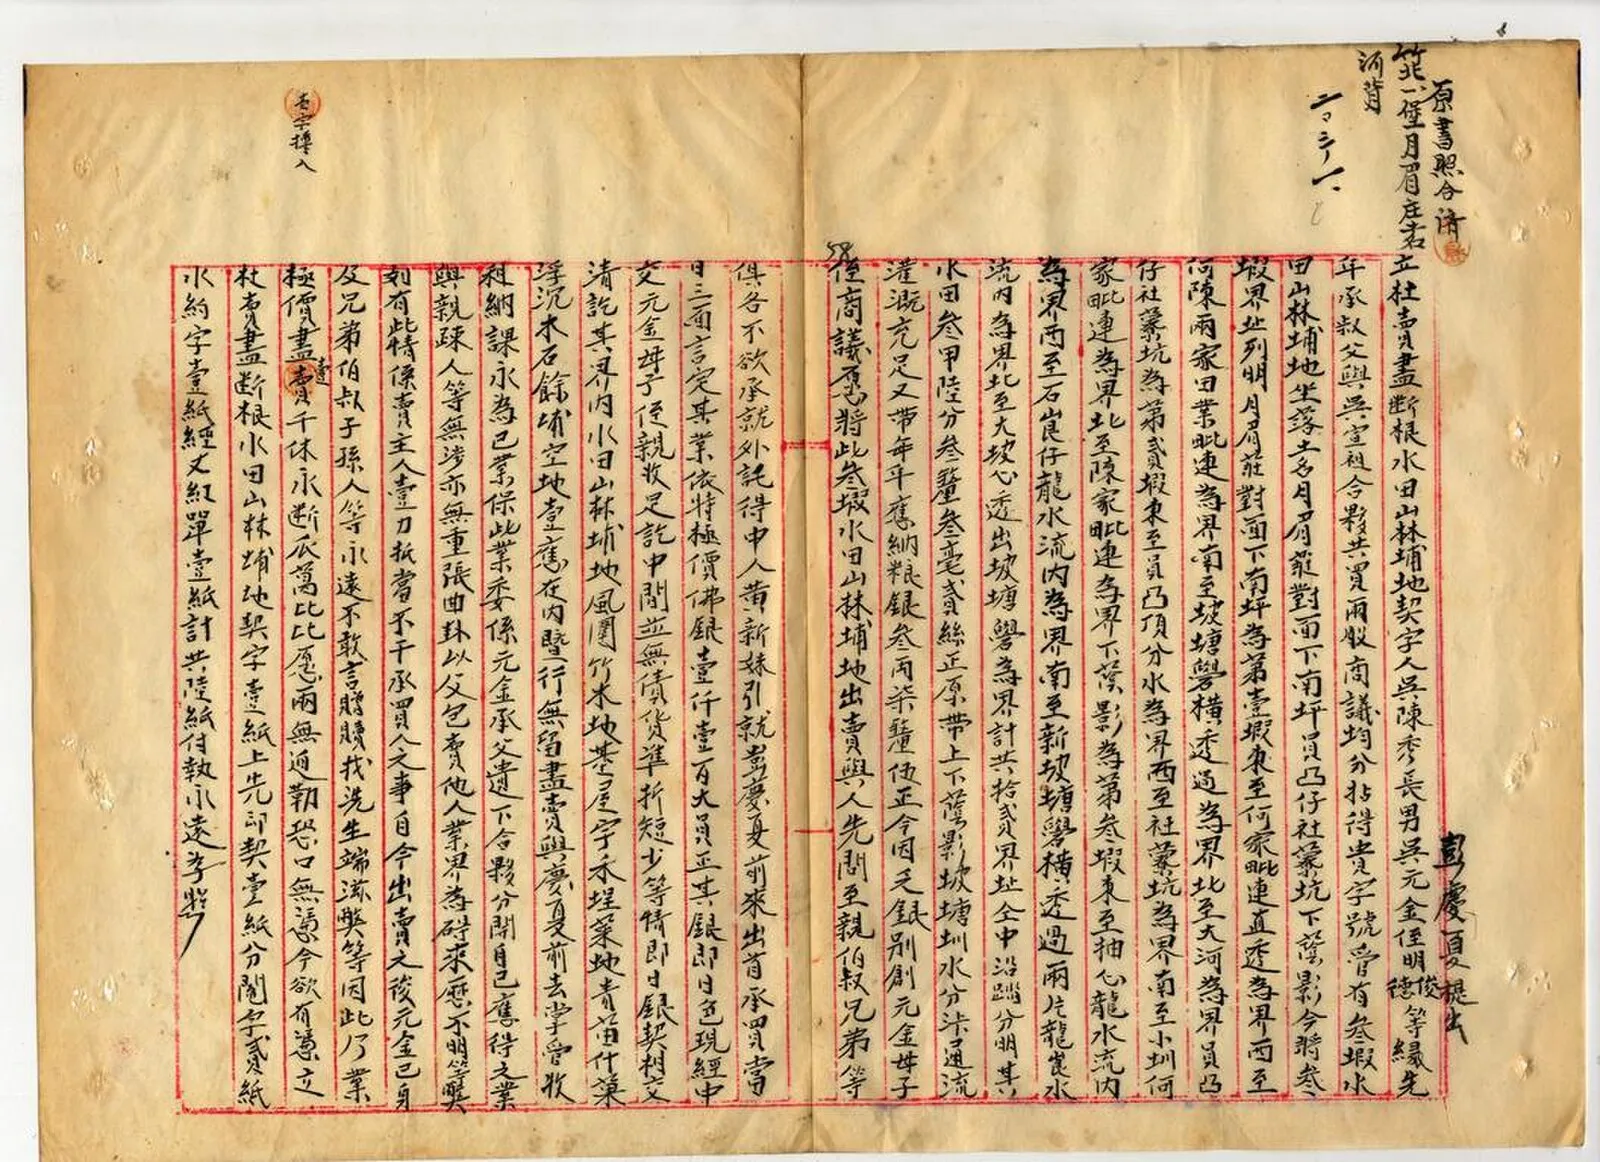 原書照合濟
竹北一堡月眉庄君
河背
二、三、一、
彭慶夏提出
立杜賣盡断根水田山林埔地契字人吳陳秀長男吳元金侄明俊德等緣先
年承叔父與吳宣祖合夥共買兩股商議均分拈得貴字號管有叁塅水
田山林埔地坐落土名月眉叢對面下南坪員凸仔社藔坑下蔭影今將叁
塅界址列明月眉莊對面下南坪為第壹塅東至何家毗連直透為界西至
何陳兩家田業毗連為界南至坡塘礐横透過為界北至大河為界員凸
仔社藔坑為第貳塅東至員凸頂分水為界西至社藔坑為界南至小圳何
家毗連為界北至陳家毗連為界下蔭影為第叁塅東至抽心龍水流内
為界西至石崀仔龍水流内為界南至新坡塘礐横透過兩片龍崀水
流内為界北至大坡心透出坡塘礐為界計共拾貳界址仝中沿踏分明其
水田叁甲陸分叁釐叁毫貳絲正原帶上下蔭影坡塘圳水分汴通流
灌溉充足又帶每年應納粮銀叁両柒釐伍正今因乏銀别創元金母子
侄商議愿將此叁塅水田山林埔地出賣與人先問至親伯叔兄弟等
俱各不欲承就外託得中人黃新妹引就彭慶夏前來出首承買當
日三面言定其業依時極價佛銀壹仟壹百大員正其銀即日色現經中
交元金母子侄親收足訖中間並無債貨準折短少等情即日銀契相交
清訖其界内水田山林埔地風圍竹木地基屋宇禾埕菜地青苗什菓
浮沉木石餘埔空地壹應在内暨行無留盡賣與慶夏前去掌管收
租納課永為己業保此業委係元金承父遺下合夥分開自己應得之業
與親疎人等無涉亦無重張典卦以父包賣他人業界為碍來歷不明等弊
如有此情係賣主人壹力抵當不干承買人之事自今出賣之後元金己身
及兄弟伯叔子孫人等永遠不敢言贈贖找洗生端滋弊等因此乃業
極價盡壹賣千休永断瓜葛比比愿兩無逈勒恐口無憑今欲有憑立
杜賣盡断根水田山林埔地契字壹紙上先印契壹紙分鬮字貳紙
水約字壹紙經丈紅單壹紙計共陸紙付執永遠為炤
壱字挿入